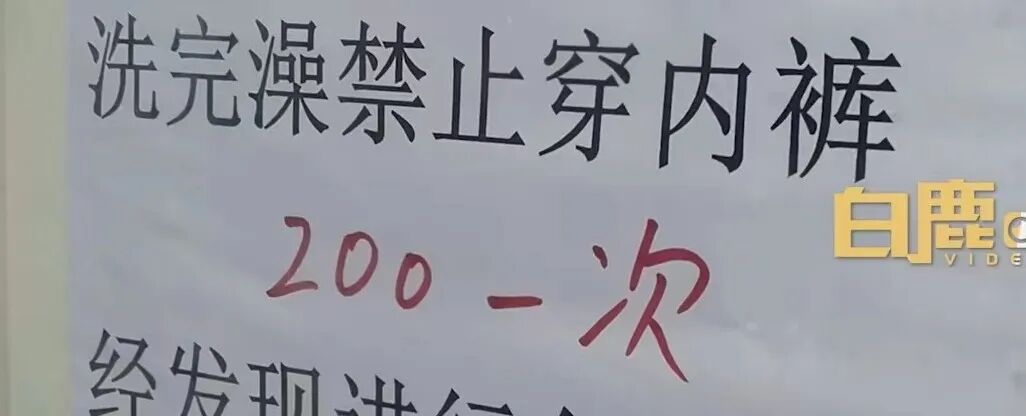 洗完澡禁止穿内裤
白鹿
VIDE
200一次
经发现进行